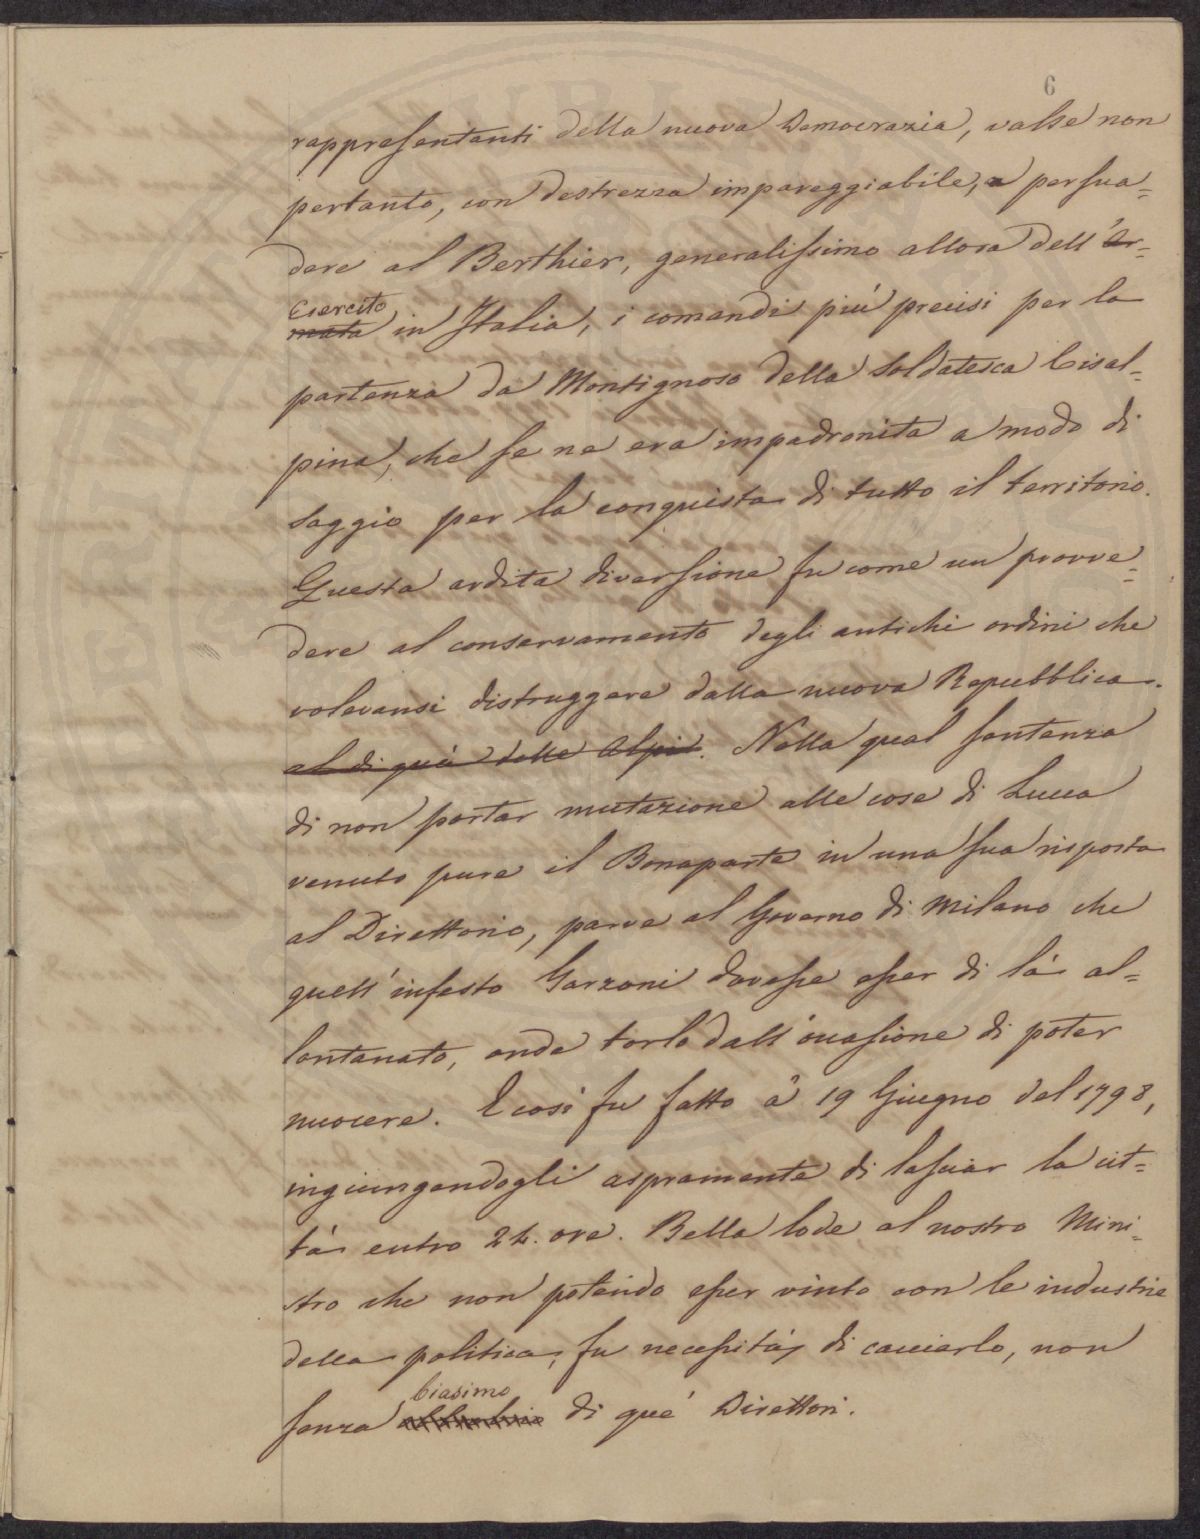 6
rappresentanti della nuova Democrazia, valse non
pertanto, con destrezza impareggiabile, a persua=
dere al Berthier, generalissimo allora dell'Ar=
Esercito
mata in Italia, i comandi più precisi per la
partenza da Montignoso della soldatesca Cisal=
pina, che se ne era impadronita a modo di
saggio per la conquista di tutto il territorio.
Questa ardita diversione fu come un provve=
dere al conservamento degli antichi ordini che
volevansi distruggere dalla nuova Repubblica.
al di quà delle Alpi. Nella qual sentenza
di non portar mutazione alle cose di Lucca
venuto pure il Bonaparte in una sua risposta
al Direttorio, parve al Governo di Milano che
quell'infesto Garzoni dovesse esser di là al=
lontanato, onde torlo dall'occasione di poter
nuocere. E così fu fatto a' 19 Giugno del 1798,
ingiungendogli aspramente di lasciar la cit=
tà entro 24. ore. Bella lode al nostro Mini=
stro che non potendo esser vinto con le industrie
della politica, fu necessità di cacciarlo, non
biasimo
senza di que' Direttori.